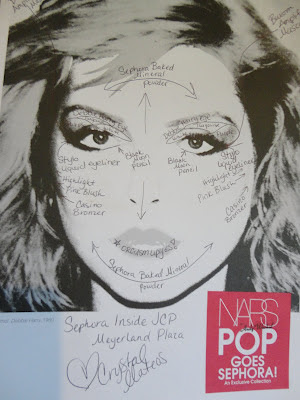 Sephora Baked
Mineral
Powder
Stylo
liquid eyeliner
Black Moon
Pencil
Black Moon
Pencil
Stylo
liquid
eyeliner
Highlight
Pink Blush
Highlight
Pink Blush
Casino
Bronzer
Casino
Bronzer
Sephora Baked Mineral
Powder
Sephora Inside JCP
Meyerland Plaza
Crystal
NARS
POP
GOES
SEPHORA!
An Exclusive Collection